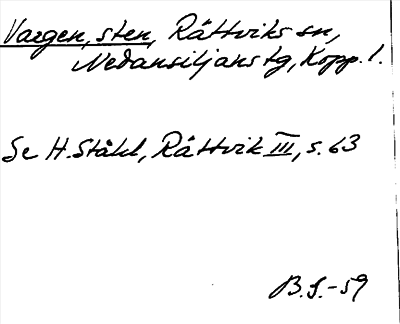 Vargen, sten, Rättviks sn,
Nedansiljans tg, Kopp. l.
Se H. Ståhl, Rättvik III, s. 63
B.S.-59